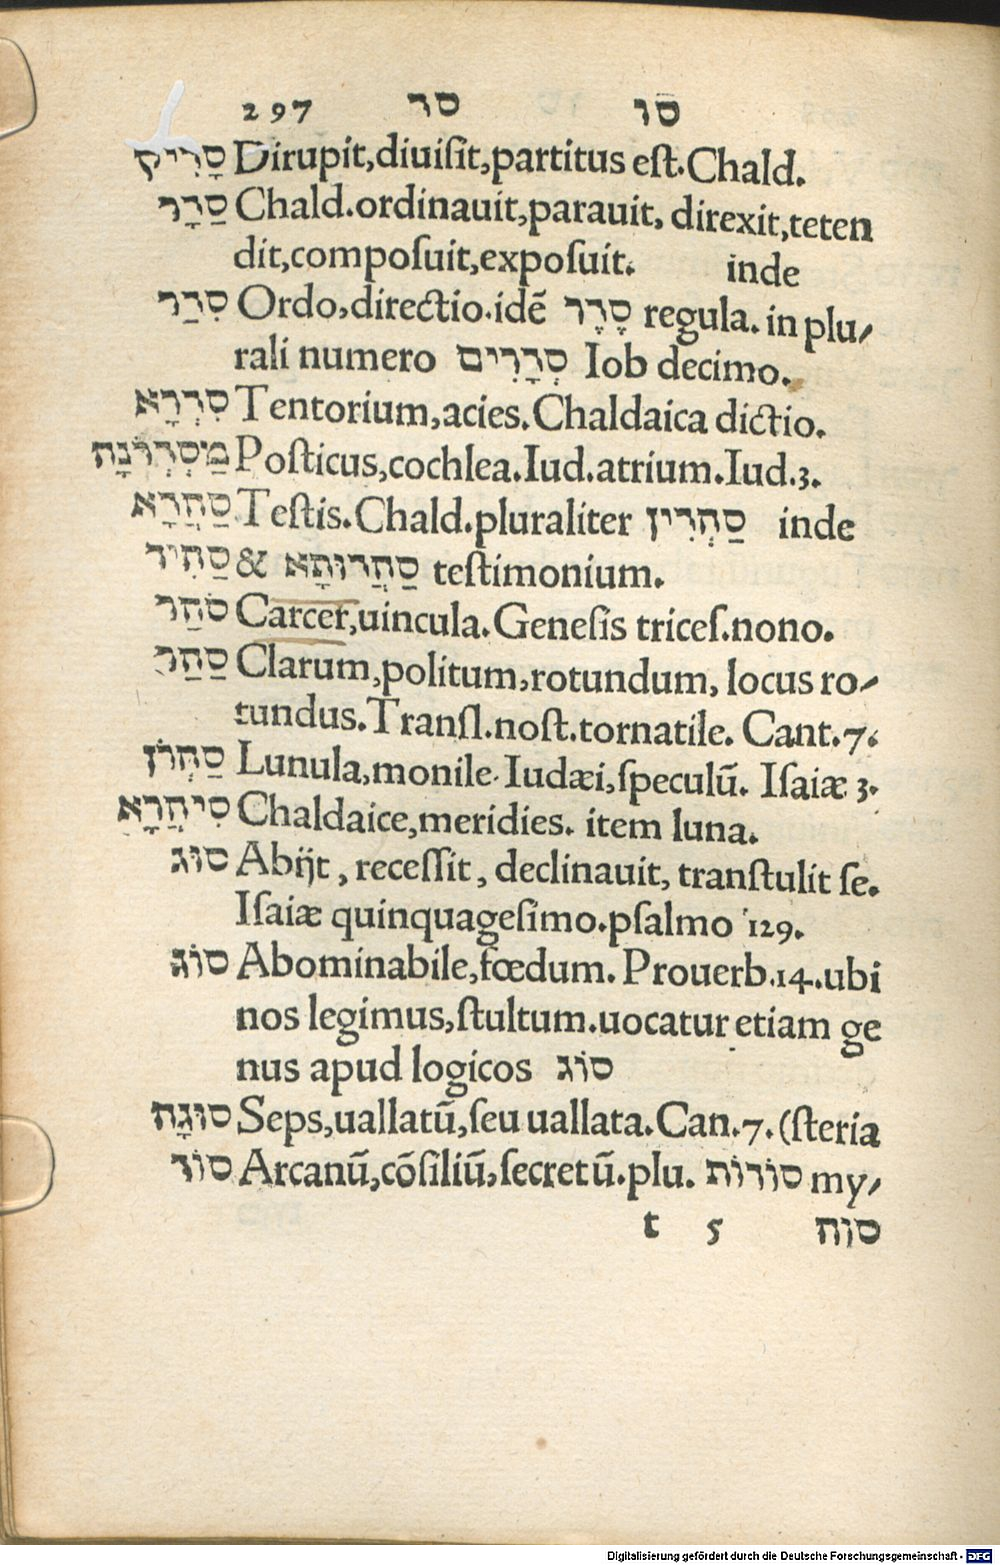 297 סד סו
סָדִיק Dirupit,diuiſit,partitus eſt.Chald.
סַדָר Chald.ordinauit,parauit, direxit,teten
dit,compoſuit,expoſuit. inde
סִדַר Ordo,directio.idē סֶדֶר regula. in plu⸗
rali numero סְדָרִים Iob decimo.
סִדְרָא Tentorium,acies.Chaldaica dictio.
מִסְדְרֹנָה Poſticus,cochlea.Iud.atrium.Iud.3.
סַהֲדָא Teſtis.Chald.pluraliter סַהְדִין inde
סַהִיד & סַהֲדוּתָא teſtimonium.
סֹהַר Carcer,uincula.Geneſis triceſ.nono.
סַהַר Clarum,politum,rotundum, locus ro⸗
tundus.Tranſl.noſt.tornatile. Cant.7.
סַהְרֹן Lunula,monile.Iudæi,ſpeculū. Iſaiæ 3.
סִיהֲרָא Chaldaice,meridies. item luna.
סוּג Abijt, receſſit, declinauit, tranſtulit ſe.
Iſaiæ quinquageſimo.pſalmo 129.
סוֹג Abominabile,fœdum. Prouerb.14.ubi
nos legimus,ſtultum.uocatur etiam ge
nus apud logicos סוֹג
סוּגָה Seps,uallatū,ſeu uallata.Can.7.(ſteria
סוֹד Arcanū,cōſiliū,ſecretū.plu. סוֹדוֹת my⸗
t 5 סוה
Digitalisierung gefördert durch die Deutsche Forschungsgemeinschaft - DFG